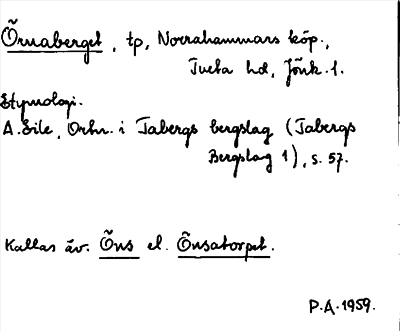 Õrnaberget, tp, Norrahammars köp.,
Tveta hd, Jönk. l.
Etymologi.
A. Eile, Ortn. i Tabergs bergslag (Tabergs
Bergslag 1), s. 57.
Kallas äv. Õns el. Õnsatorpet.
P.A. 1959.